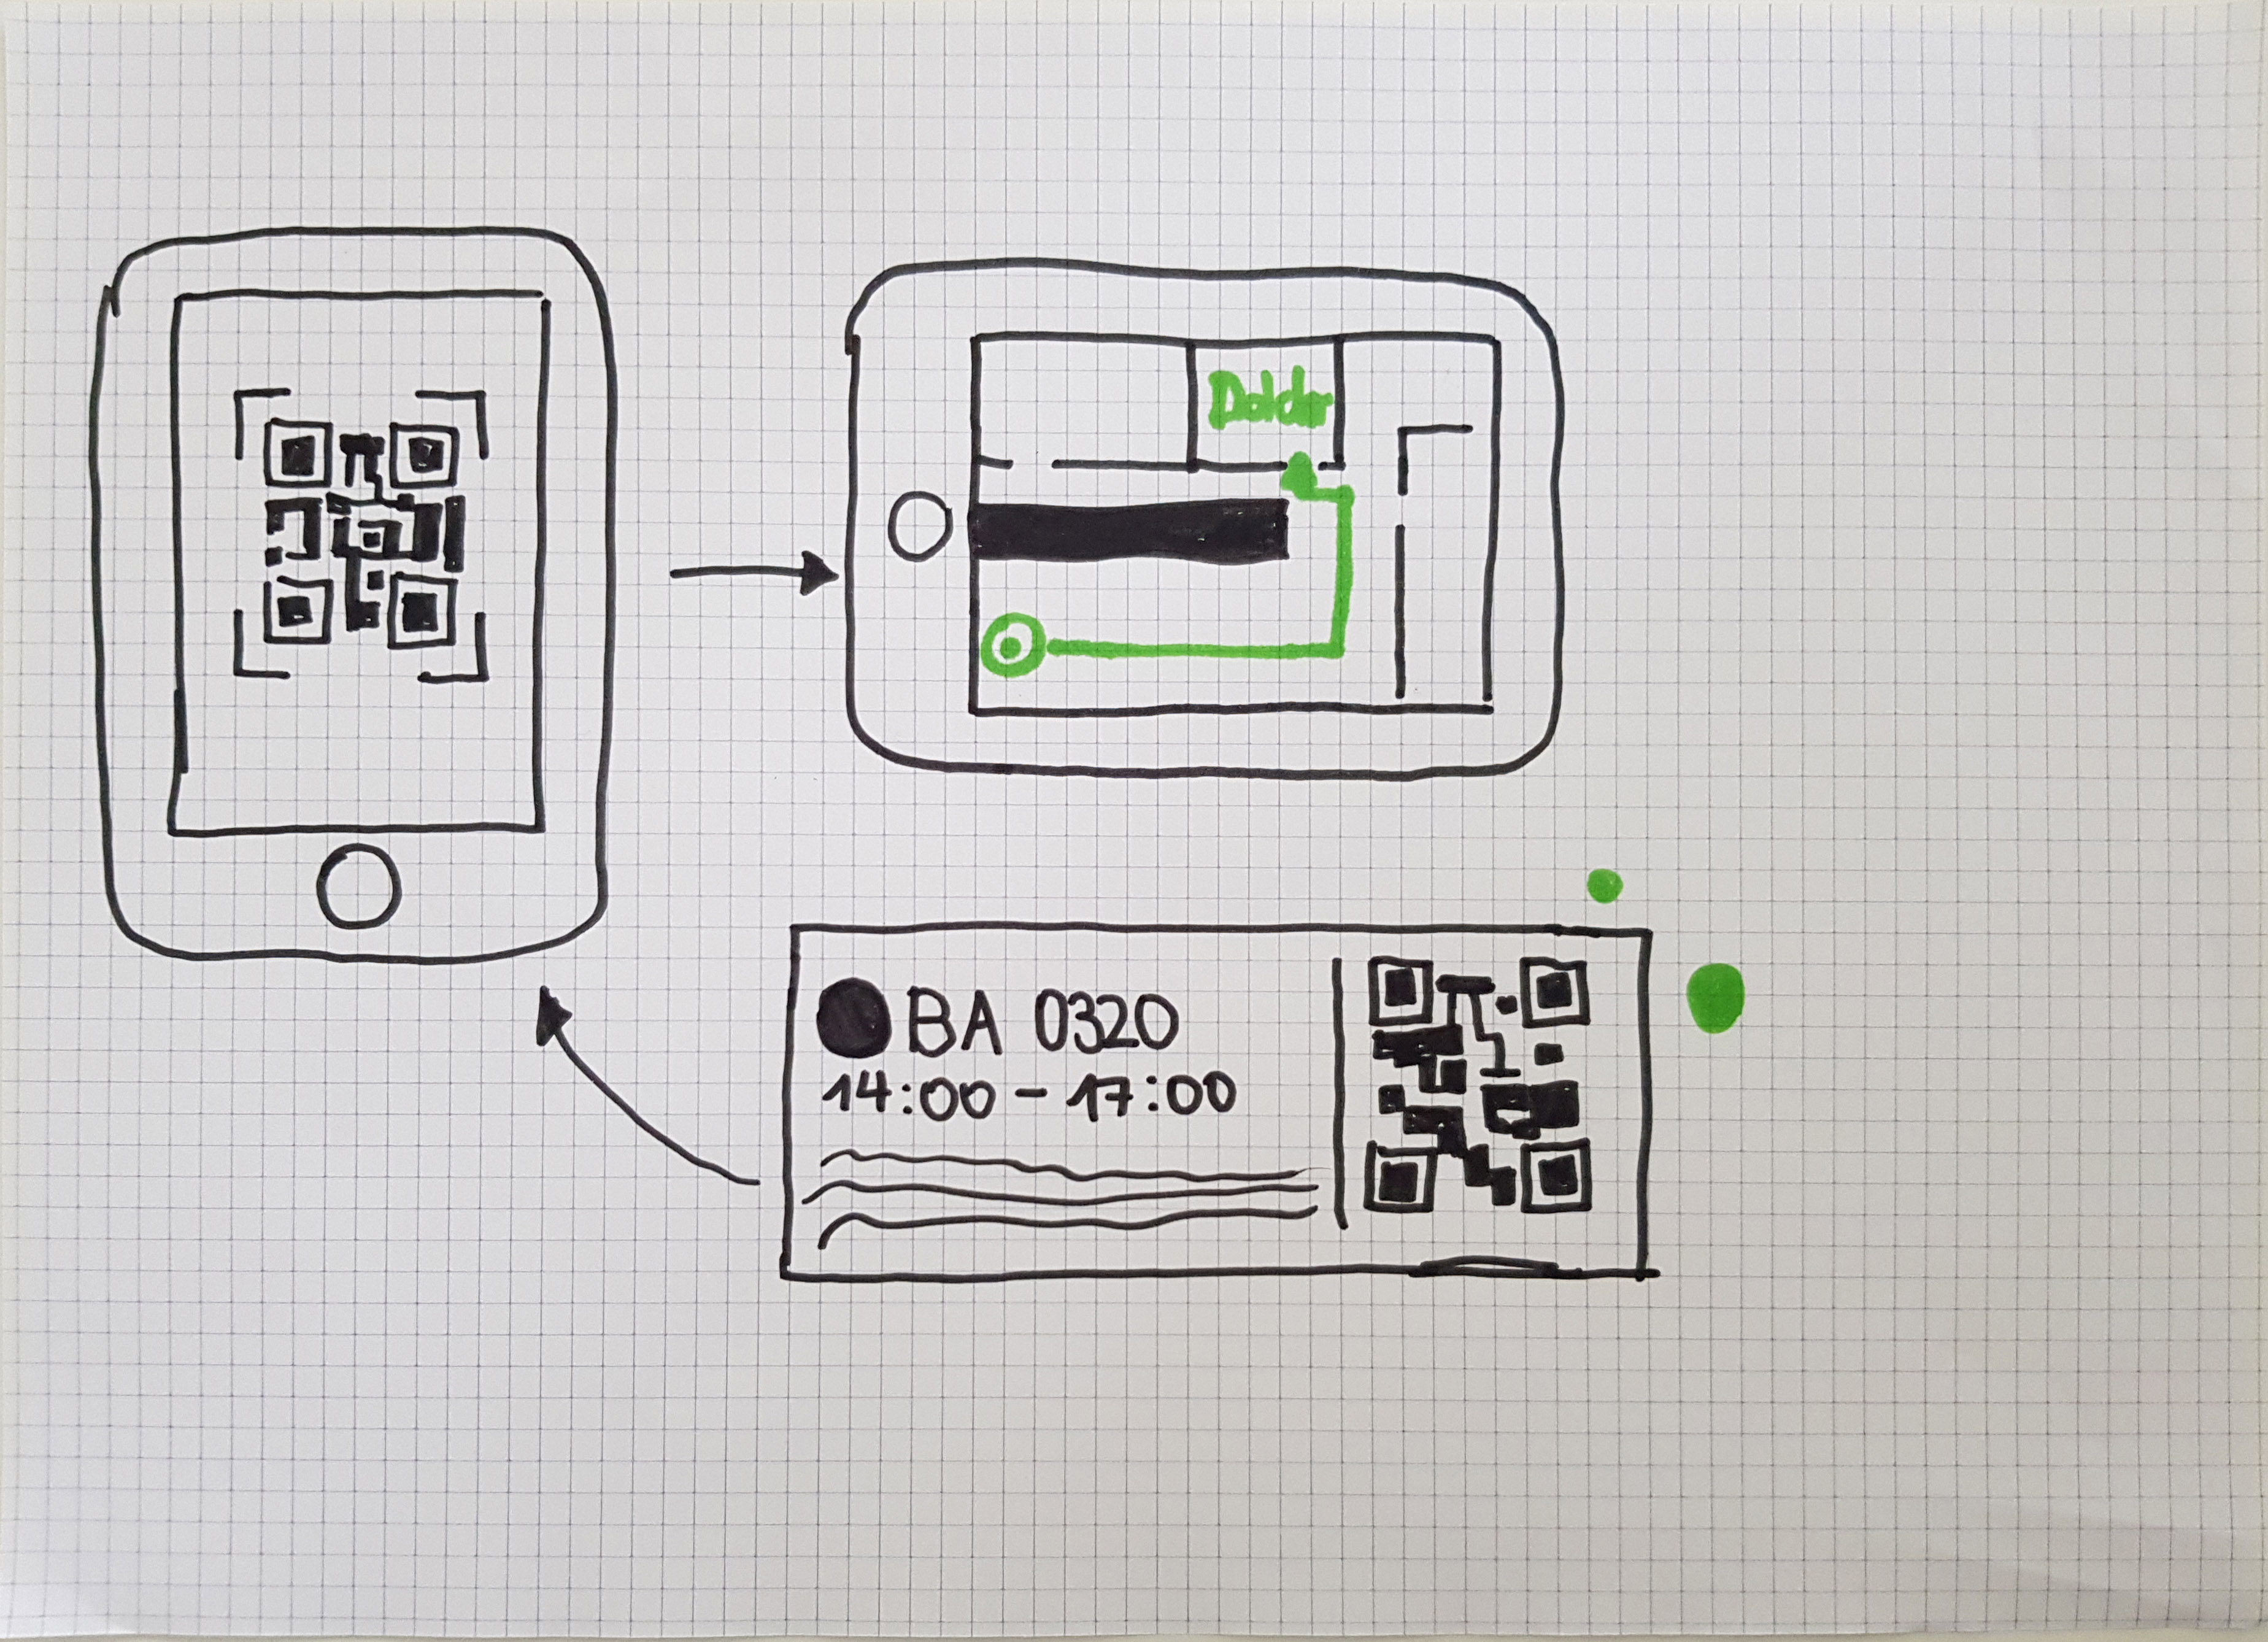 Dolder
BA 0320
14:00 - 17:00